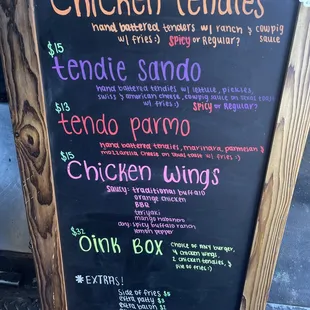 Chicken tendies
hand battered tenders w/ ranch & cowpig
sauce
w/ fries :) Spicy or Regular?
$15
tendie sando
hand battered tendies w/ lettuce, pickles,
swiss & american cheese, cowpig sauce on texas toast
w/ fries :) Spicy or Regular?
$13
tendo parmo
hand battered tendies, marinara, parmesan &
mozzarella cheese on texas toast w/ fries :)
$15
Chicken wings
Saucy: traditional buffalo
orange chicken
BBQ
teriyaki
mango habanero
spicy buffalo ranch
lemon pepper
Oink BOX
choice of any burger,
4 chicken wings,
2 chicken tendies, &
fries :)
*EXTRAS!
Side of fries
extra patty
extra bacon